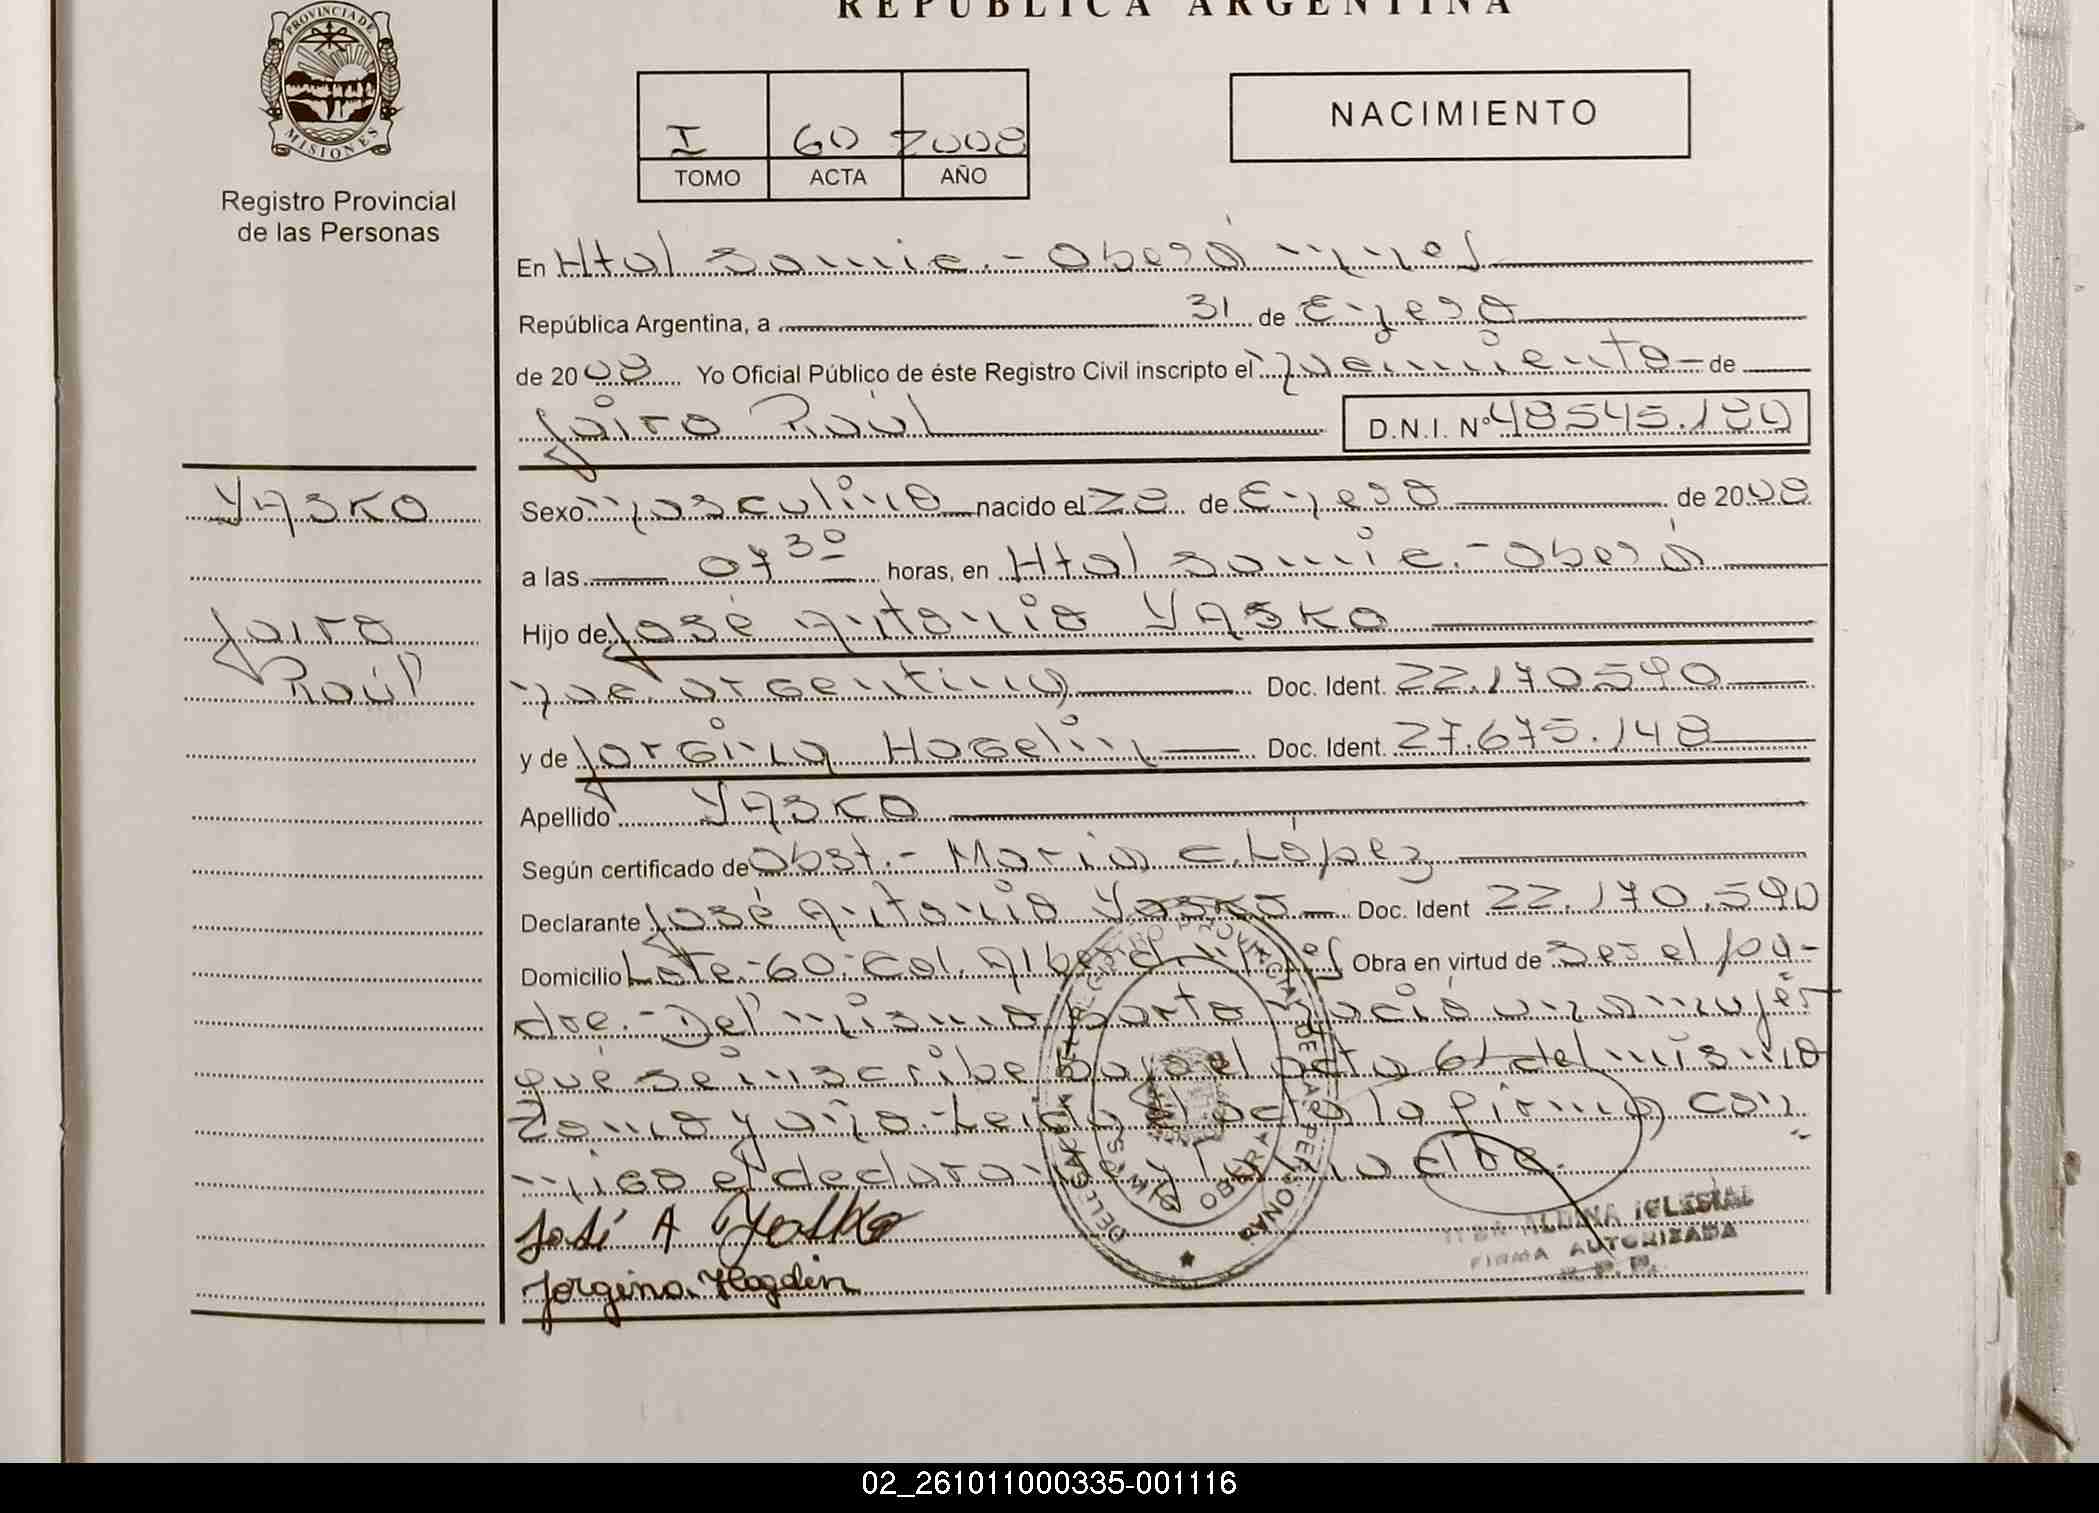 REPUBLICA ARGENTINA
PROVINCIA DE
MISIONES
Registro Provincial
de las Personas
I 60 2008
TOMO ACTA AÑO
NACIMIENTO
En Htal Samic.- Oberá Mnes
República Argentina, a 31 de Enero
de 2008 Yo Oficial Público de éste Registro Civil inscripto el nacimiento de
Jairo Raúl D.N.I. Nº 48545.180
YASKO
Sexo Masculino nacido el 28 de Enero de 2008
a las 07 30 horas, en Htal Samic.- Oberá
Jairo
Hijo de José Antonio YASKO
Raúl
nac. argentina Doc. Ident. 22.170.590
y de Jorgina Hogelin Doc. Ident. 27.675.148
Apellido YASKO
Según certificado de Obst.- Maria C. López
Declarante José Antonio Yasko Doc. Ident 22.170.590
Domicilio Lote.-60.-Col. Alberdi Mnes Obra en virtud de ser el pa-
dre.- Del mismo parto nació una mujer
que se inscribe bajo el acta 61 del mismo
tomo y año.- Leida el acta la firma con
migo el declarante y la madre.
José A Yasko
Jorgina Hogelin
DELEGACION DEL REGISTRO PROVINCIAL DE LAS PERSONAS
ALDINA IGLESIAS
FIRMA AUTORIZADA
R.P.P.
02_261011000335-001116